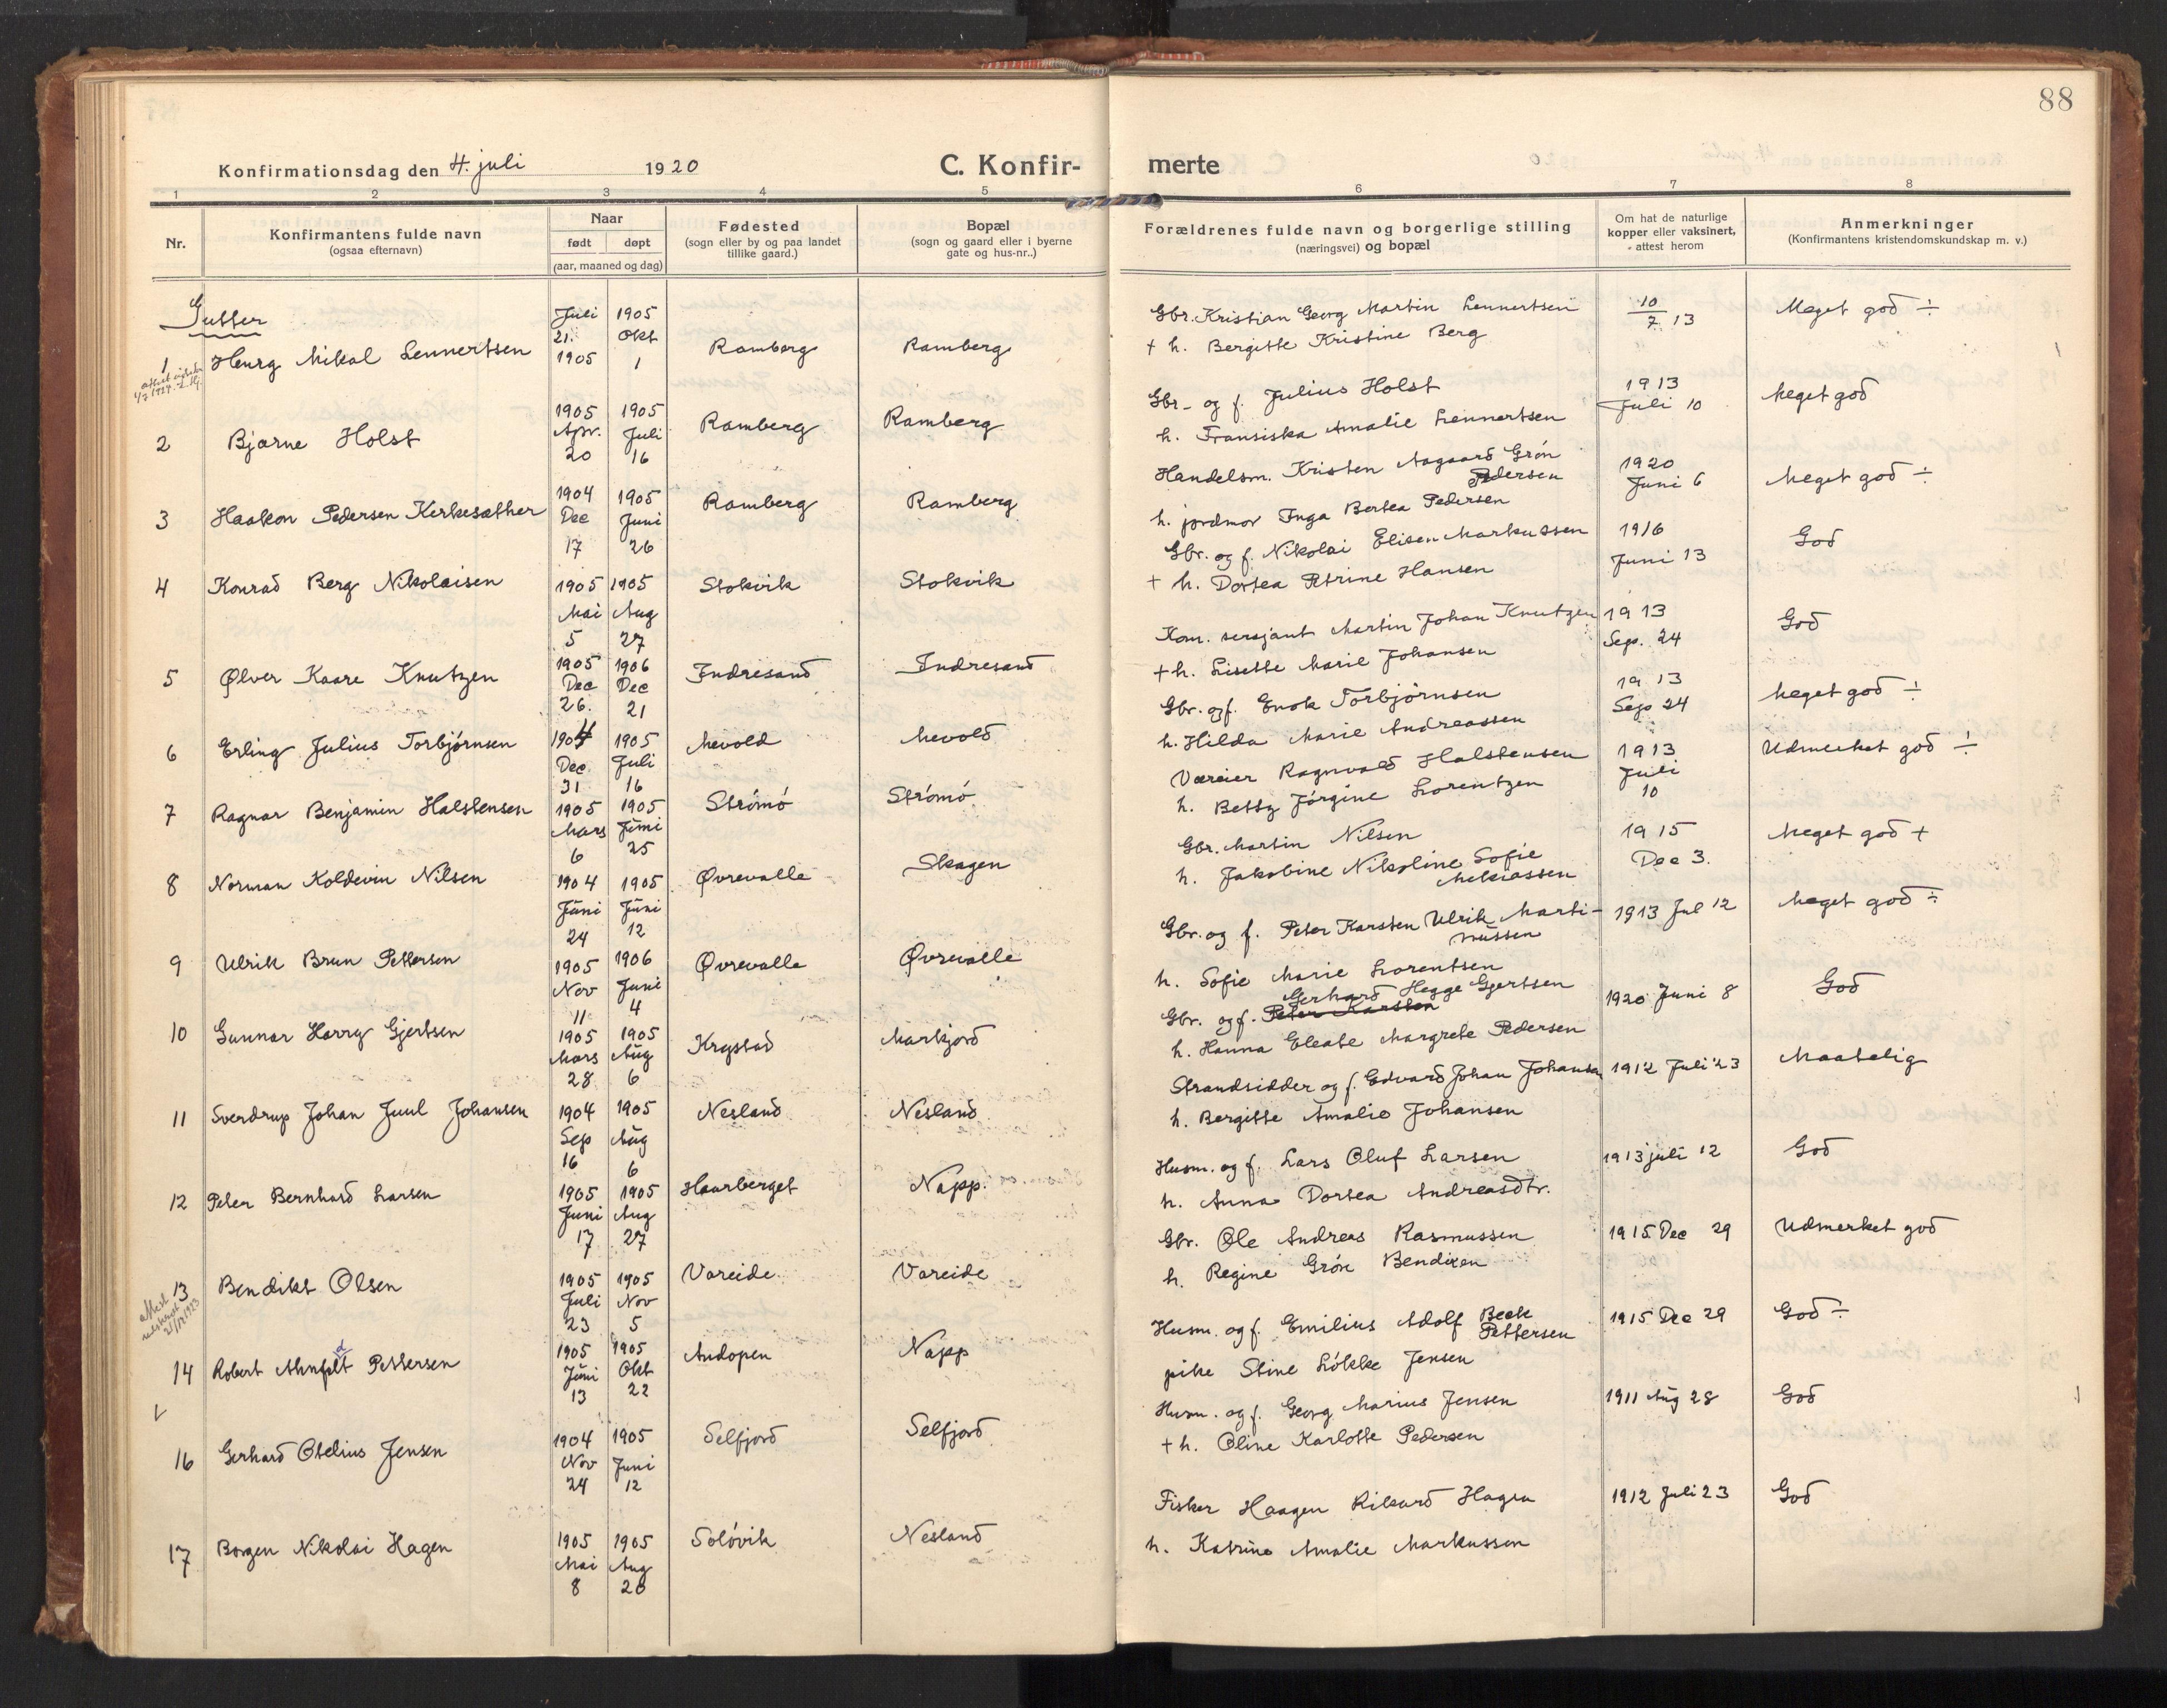 88
Konfirmationsdag den 4. juli 1920
C. Konfir-
merte
1 2 3 4 5 6 7 8
Nr.
Konfirmantens fulde navn
(ogsaa efternavn)
Naar
født døpt
(aar, maaned og dag)
Fødested
(sogn eller by og paa landet
tillike gaard.)
Bopæl
(sogn og gaard eller i byerne
gate og hus-nr..)
Forældrenes fulde navn og borgerlige stilling
(næringsvei) og bopæl
Om hat de naturlige
kopper eller vaksinert,
attest herom
Anmerkninger
(Konfirmantens kristendomskundskap m. v.)
Gutter
1 Henrg Mikal Lennertsen
Juli 1905
21. Okt
1905 1
Ramberg Ramberg
Gbr. Kristian Georg Martin Lennertsen
+ h. Bergitte Kristine Berg
10
7 13
Meget god ÷
2 Bjarne Holst
1905 1905
Apr. Juli
20 16
Ramberg Ramberg
Gbr- og f. Julius Holst
h. Fransiska Amalie Lennertsen
1913
Juli 10
Meget god
3 Haakon Pedersen Kirkesæther
1904 1905
Dec Juni
17 26
Ramberg Ramberg
Handelsm. Kristen Aagaard Grön
Pedersen
h. jordmor Inga Bertea Pedersen
1920
Juni 6
Meget god ÷
4 Konrad Berg Nikolaisen
1905 1905
Mai Aug
5 27
Stokvik Stokvik
Gbr. og f. Nikolai Elisen Markussen
+ h. Dortea Petrine Hansen
1916
Juni 13
God
5 Ølver Kaare Knutzen
1905 1906
Dec Dec
26. 21
Indresand Indresand
Kom. sersjant Martin Johan Knutzen
+ h. Lisette Marie Johansen
1913
Sep. 24
God
6 Erling Julius Torbjörnsen
1904 1905
Dec. Juli
31 16
Mevold Mevold
Gbr. og f. Enok Torbjörnsen
h. Hilda Marie Andreassen
1913
Sep 24
Meget god ÷
7 Ragnar Benjamin Halstensen
1905 1905
Mars Juni
6 25
Strömö Strömö
Væreier Ragnvald Halstensen
h. Betty Jörgine Lorentzen
1913
Juli
10
Udmerket god ÷
8 Norman Koldevin Nilsen
1904 1905
Juni Juni
24 12
Øvrevalle Skagen
Gbr. Martin Nilsen
h. Jakobine Nikoline Sofie
Mekiassen
1915
Dec 3.
Meget god +
9 Ulrik Brun Pettersen
1905 1906
Nov Juni
11 4
Øvrevalle Øvrevalle
Gbr. og f. Peter Karsten Ulrik Marti-
nussen
h. Sofie Marie Lorentsen
1913 Jul 12
Meget god ÷
10 Gunnar Harry Gjertsen
1905 1905
Mars Aug
28 6
Krystad Markjord
Gerhard Hegge Gjertsen
Gbr. og f. Peter Karsten
h. Hanna Eleate Margrete Pedersen
1920 Juni 8
God
11 Sverdrup Johan Juul Johansen
1904 1905
Sep Aug
16 6
Nesland Nesland
Strandsidder og f. Edvard Johan Johansen
h. Bergitte Amalie Johansen
1912 Juli 23
Maatelig
12 Peter Bernhard Larsen
1905 1905
Juni Aug
17 27
Haarberget Napp.
Husm. og f. Lars Oluf Larsen
h. Anna Dortea Andreasdtr.
1913 juli 12
God
13 Bendikt Olsen
1905 1905
Juli Nov
23 5
Vareide Vareide
Gbr. Ole Andreas Rasmussen
h. Regine Grön Bendixen
1915 Dec 29
Udmerket god
14 Robert Pettersen
1905 1905
Juni Okt
13 22
Andopen Napp
Husm. og f. Emilius Adolf Beck
Pettersen
pike Stine Lökke Jensen
1915 Dec 29
God ÷
16 Gerhard Otelius Jensen
1904 1905
Nov Juni
24 12
Selfjord Selfjord
Husm. og f. Georg Marius Jensen
+ h. Oline Karlotte Pedersen
1911 Aug 28
God
17 Borgen Nikolai Hagen
1905 1905
Mai Aug
8 20
Solövik Nesland
Fisker Haagen Rikard Hagen
h. Katrine Amalie Markussen
1912 Juli 23
God